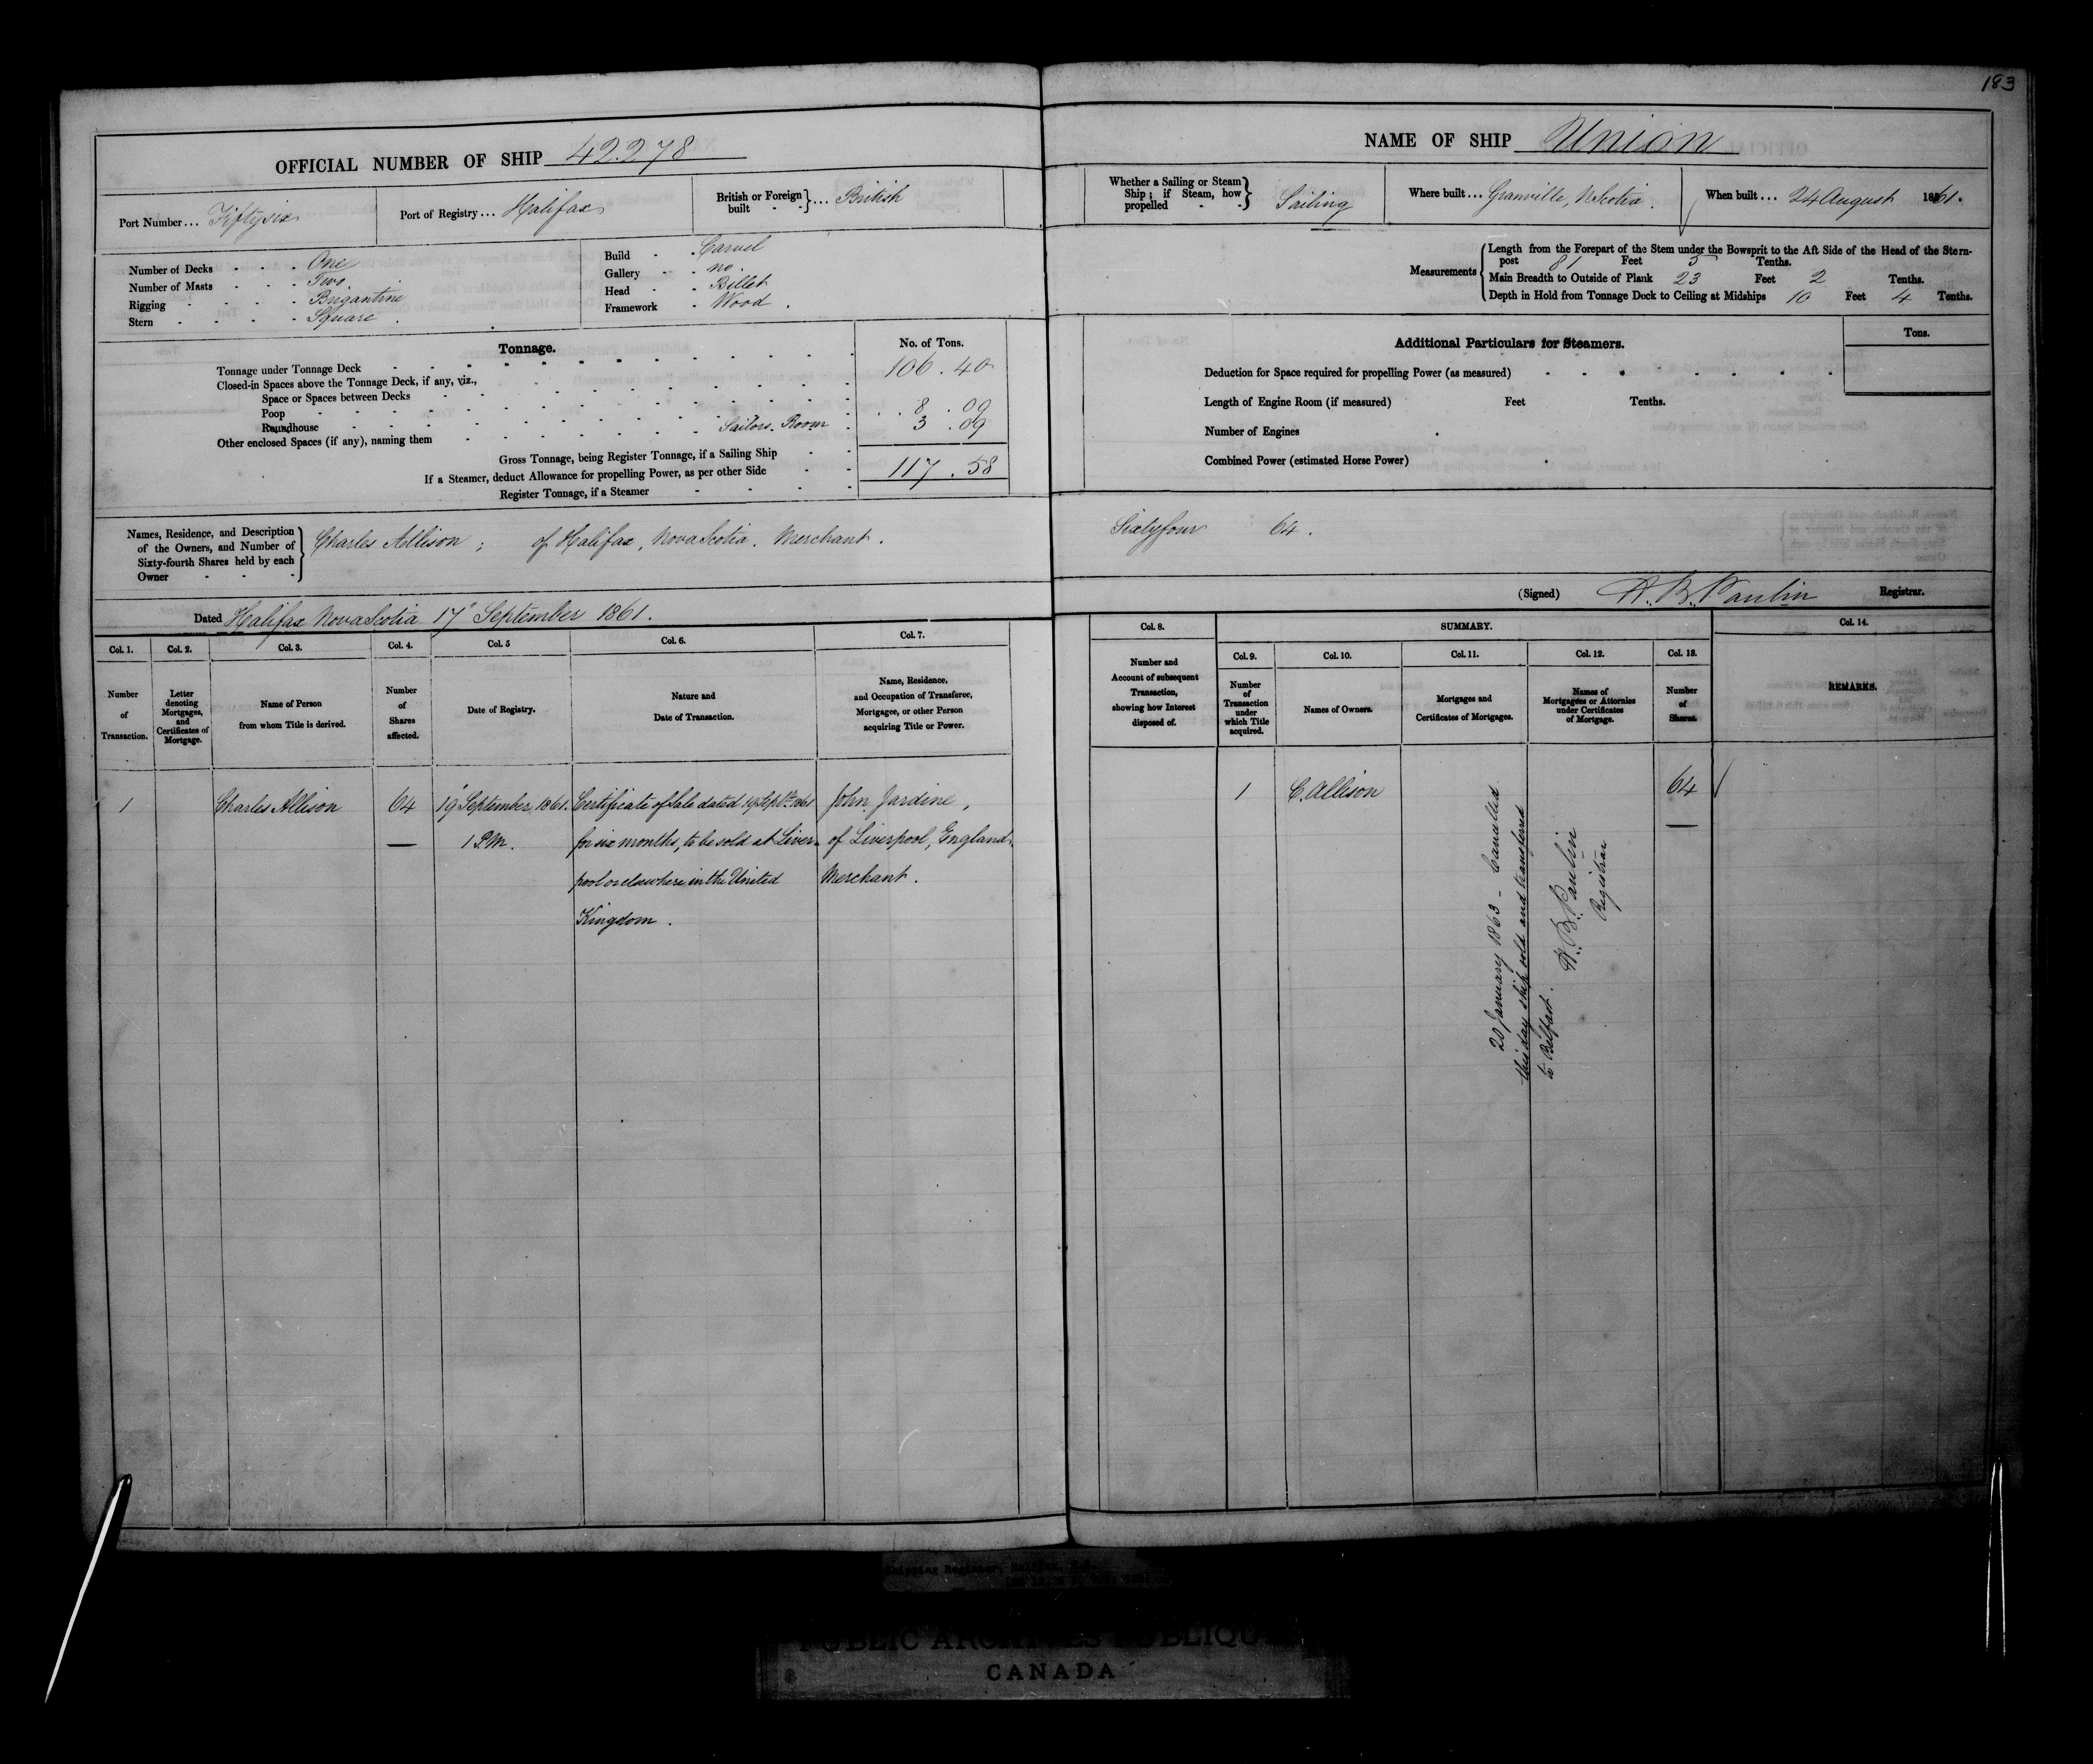 183
OFFICIAL NUMBER OF SHIP 42.278
Port Number... Fiftysix
Port of Registry... Halifax
British or Foreign built - - } ... British
Number of Decks - - - One
Number of Masts - - - Two
Rigging - - - - Brigantine
Stern - - - - Square.
Build - - Carvel
Gallery - - no.
Head - - Billet
Framework - Wood.
Tonnage.
No. of Tons.
Tonnage under Tonnage Deck 106.40
Closed-in Spaces above the Tonnage Deck, if any, viz.,
Space or Spaces between Decks
Poop 8.09
Roundhouse
Other enclosed Spaces (if any), naming them Sailors Room 3.09
Gross Tonnage, being Register Tonnage, if a Sailing Ship 117.58
If a Steamer, deduct Allowance for propelling Power, as per other Side
Register Tonnage, if a Steamer
Names, Residence, and Description
of the Owners, and Number of
Sixty-fourth Shares held by each
Owner - - -
Charles Allison; of Halifax, Nova Scotia. Merchant.
Dated Halifax Nova Scotia 17" September 1861.
Col. 1. Col. 2. Col. 3. Col. 4. Col. 5 Col. 6. Col. 7.
Number of Transaction.
Letter denoting Mortgages, and Certificates of Mortgage.
Name of Person from whom Title is derived.
Number of Shares affected.
Date of Registry.
Nature and Date of Transaction.
Name, Residence, and Occupation of Transferee, Mortgagee, or other Person acquiring Title or Power.
1 Charles Allison 64 19" September 1861. Certificate of Sale dated 19 Septbr 1861 John Jardine,
1 P.M. for six months, to be sold at Liver- of Liverpool, England.
pool or elsewhere in the United Merchant.
Kingdom.
NAME OF SHIP Union
Whether a Sailing or Steam Ship; if Steam, how propelled - - } Sailing
Where built... Granville, N.Scotia.
When built... 24 August 1861.
Measurements
Length from the Forepart of the Stem under the Bowsprit to the Aft Side of the Head of the Stern-
post 81 Feet 5 Tenths.
Main Breadth to Outside of Plank 23 Feet 2 Tenths.
Depth in Hold from Tonnage Deck to Ceiling at Midships 10 Feet 4 Tenths.
Additional Particulars for Steamers.
Tons.
Deduction for Space required for propelling Power (as measured)
Length of Engine Room (if measured) Feet Tenths.
Number of Engines
Combined Power (estimated Horse Power)
Sixtyfour 64.
(Signed) H. B. Paulin Registrar.
Col. 8. SUMMARY. Col. 14.
Col. 9. Col. 10. Col. 11. Col. 12. Col. 13.
Number and Account of subsequent Transaction, showing how Interest disposed of.
Number of Transaction under which Title acquired.
Names of Owners.
Mortgages and Certificates of Mortgages.
Names of Mortgagees or Attornies under Certificates of Mortgage.
Number of Shares.
REMARKS.
1 C. Allison 64
20 January 1863 - Cancelled
this day ship sold and transferred
to Belfast.
H. B. Paulin
Registrar
Shipping Register, Halifax, N.S.
PUBLIC ARCHIVES PUBLIQUES
CANADA